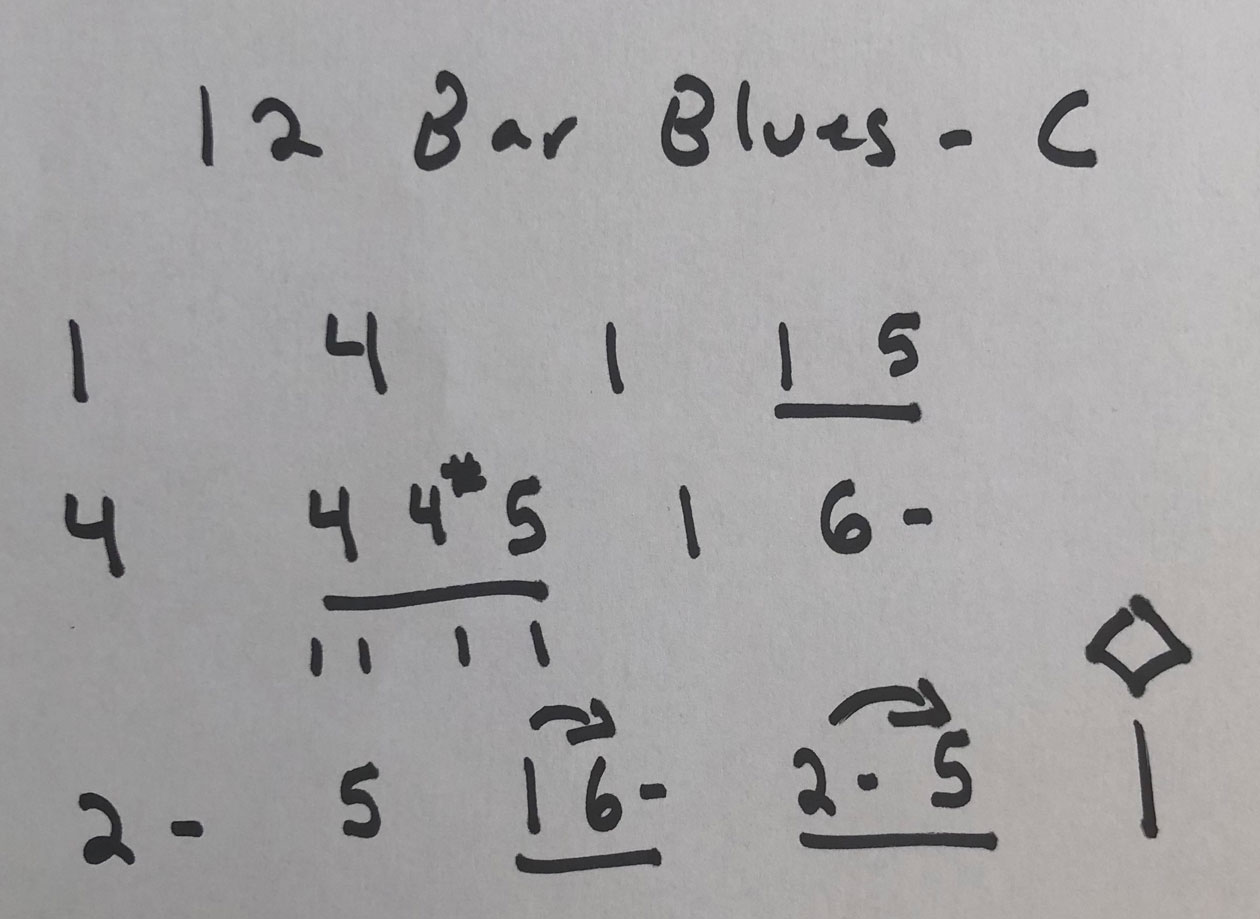 12 Bar Blues - C
1 4 1 1 5
4 4 4# 5 1 6-
2- 5 1 6- 2- 5 1